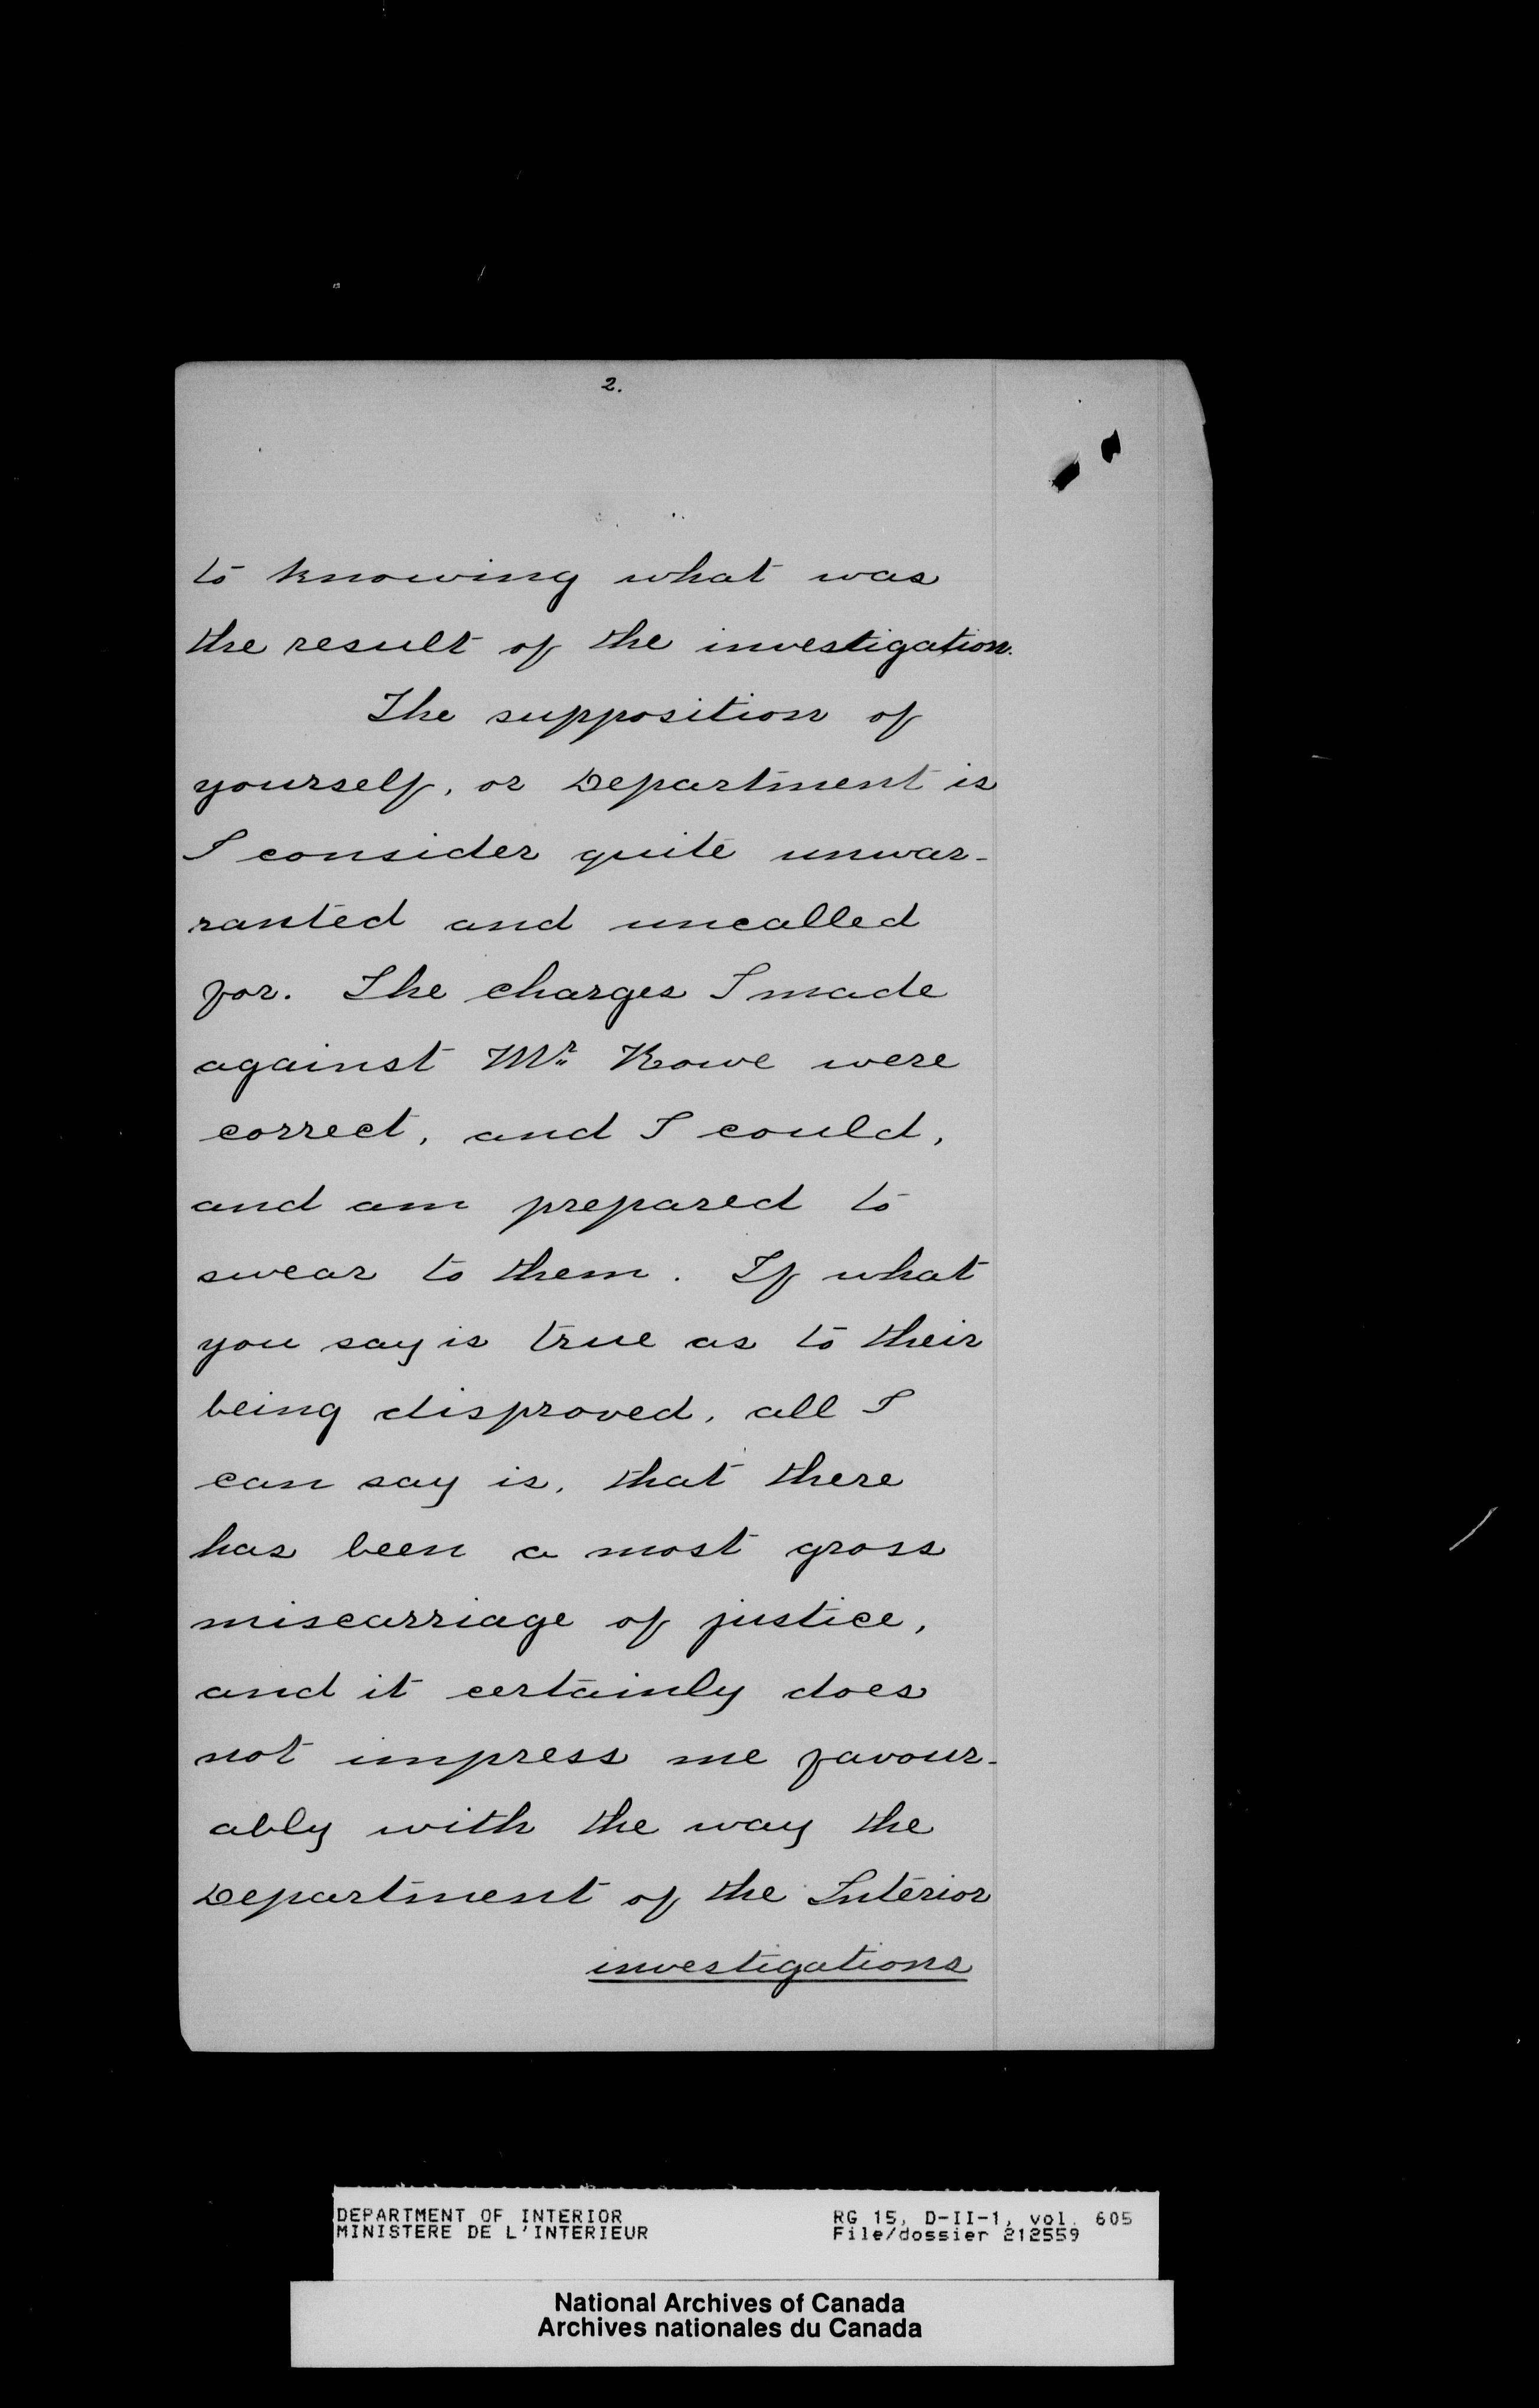 2.
to knowing what was
the result of the investigation.
The supposition of
yourself, or Department is
I consider quite unwar-
ranted and uncalled
for. The charges I made
against Mr. Rowe were
correct, and I could,
and am prepared to
swear to them. If what
you say is true as to their
being disproved, all I
can say is, that there
has been a most gross
miscarriage of justice,
and it certainly does
not impress me favour-
ably with the way the
Department of the Interior
investigations
DEPARTMENT OF INTERIOR RG 15, D-II-1, vol. 605
MINISTERE DE L'INTERIEUR File/dossier 212559
National Archives of Canada
Archives nationales du Canada